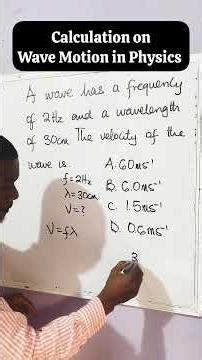 Calculation on
Wave Motion in Physics
A wave has a frequency
of 2Hz and a wavelength
of 30cm The velocity of the
wave is
A. 60ms⁻¹
f=2Hz
B. 6.0ms⁻¹
λ=30cm
C. 1.5ms⁻¹
V=?
D. 0.6ms⁻¹
V=fλ
3